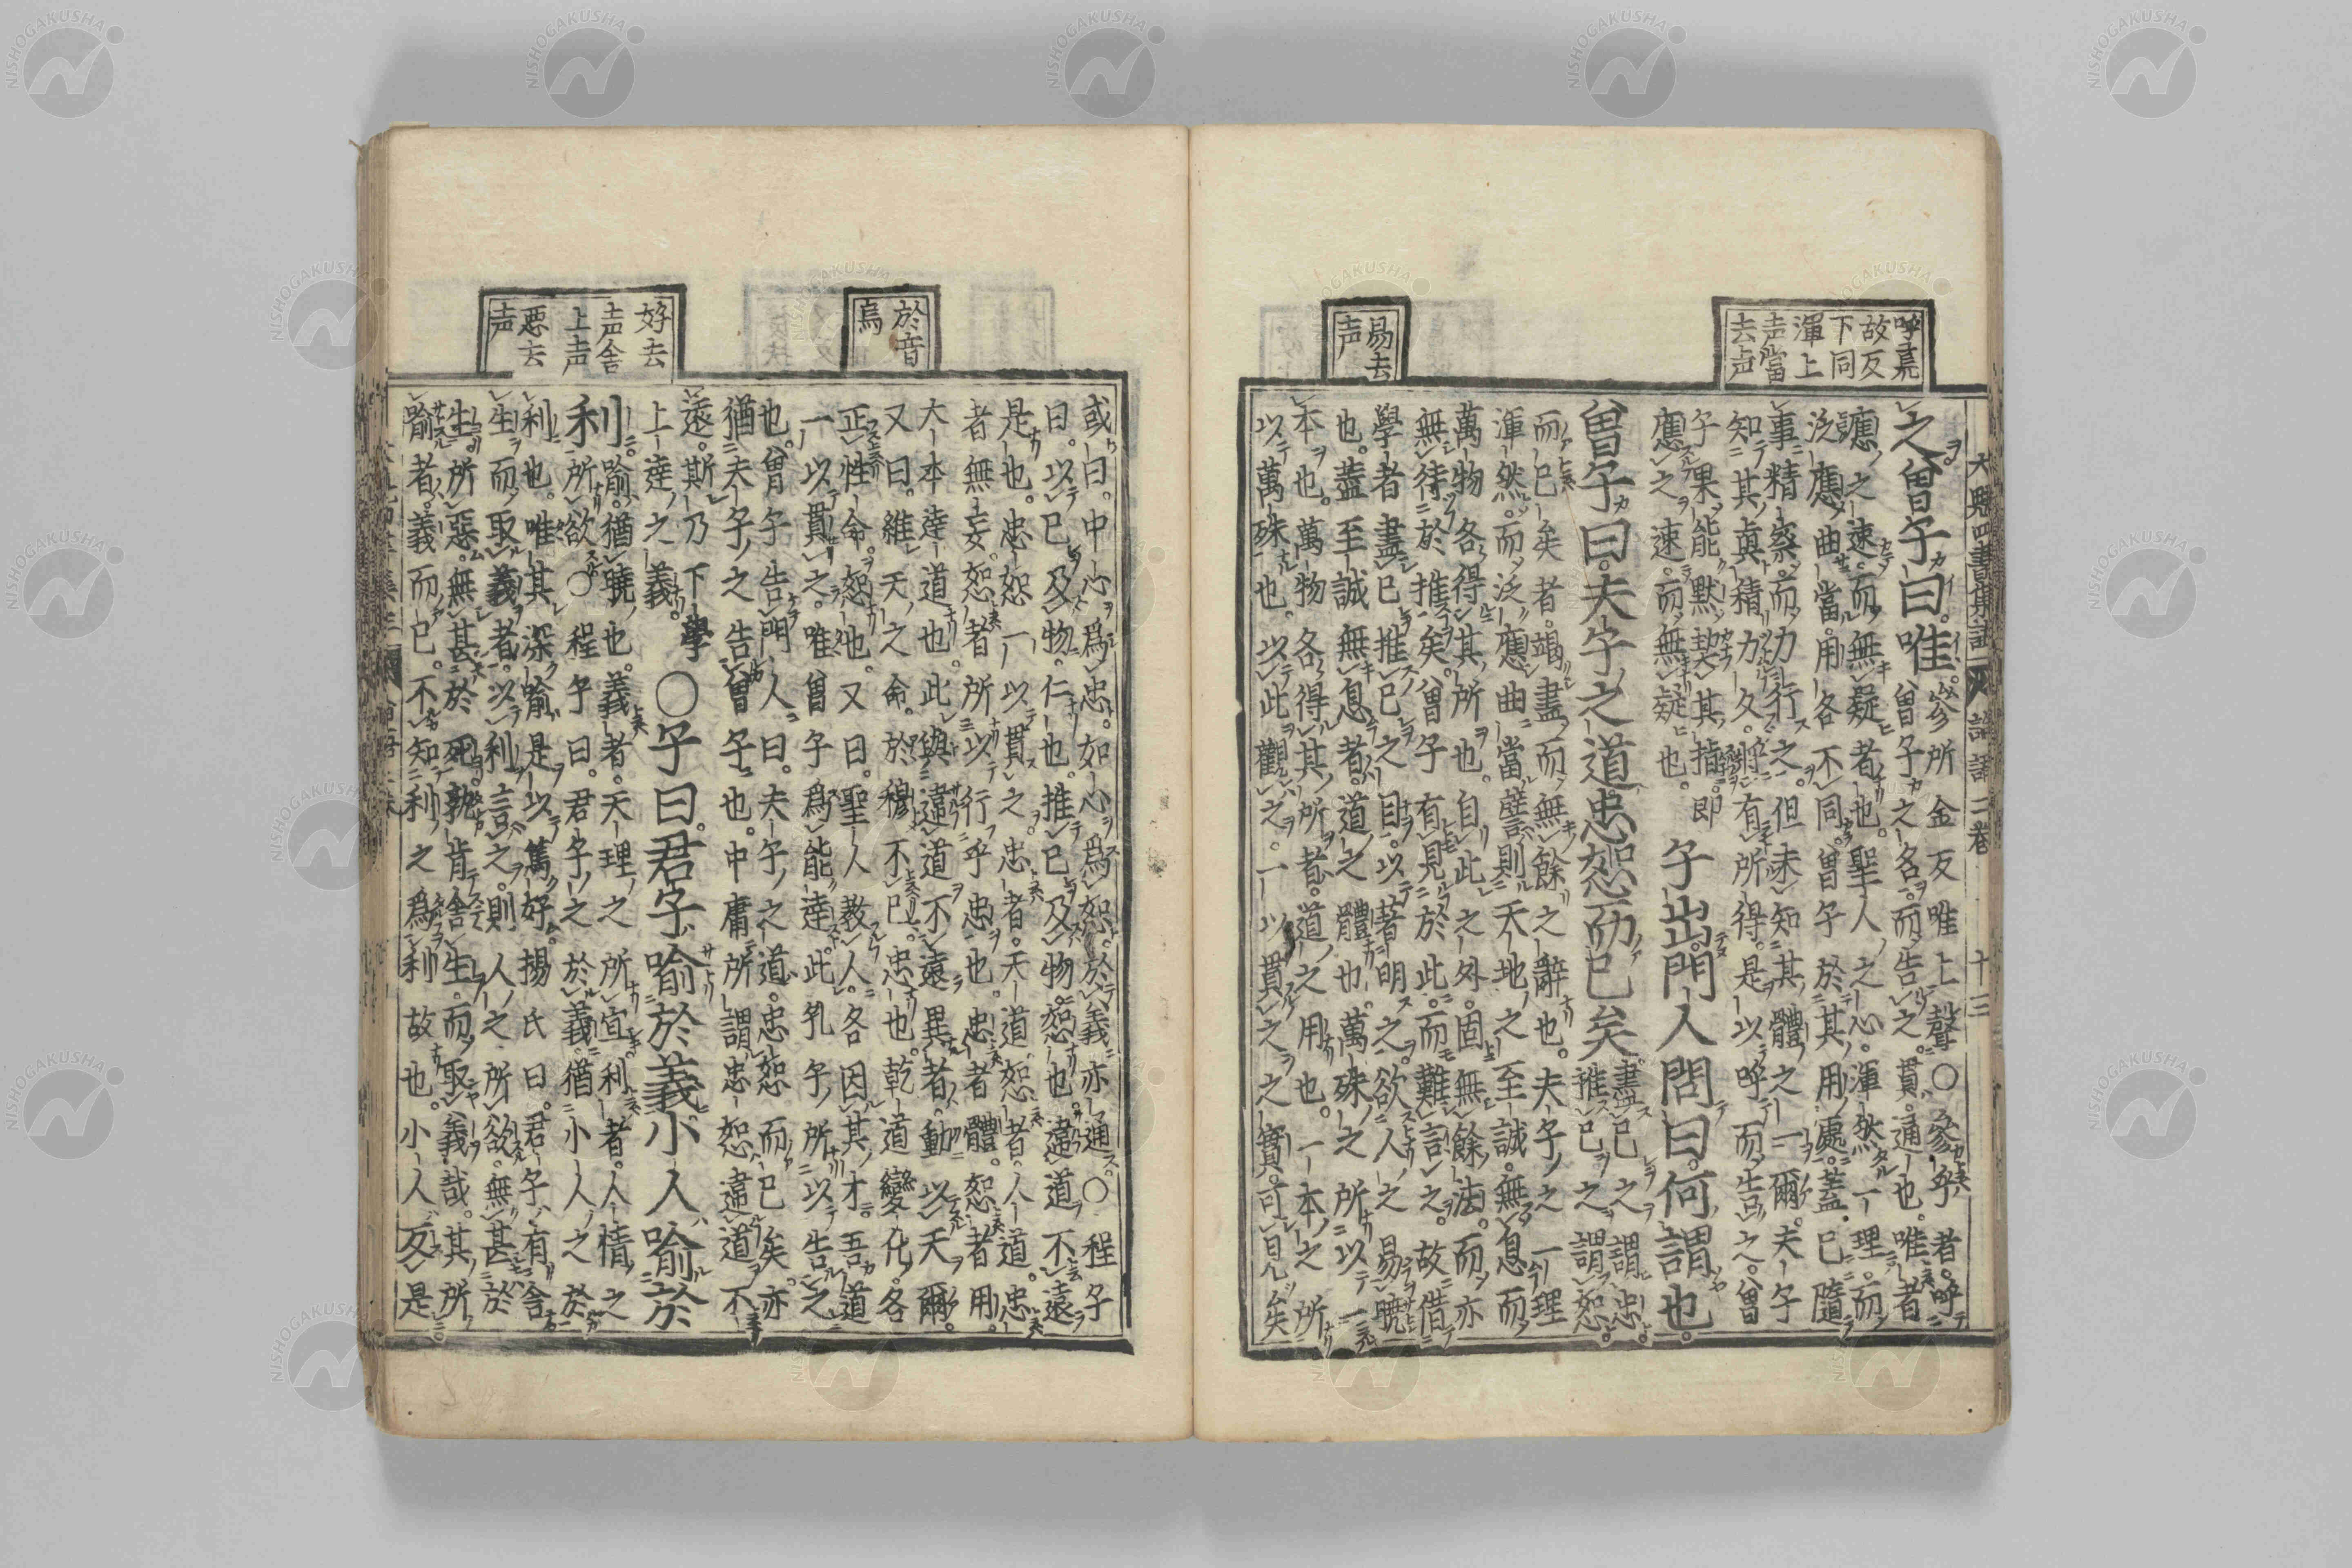 呼荒
故反
下同
渾上
声當
去声
易去
声
大魁四書集註 論語二卷 十三
之曾子曰唯參所金反唯上聲○參乎者呼
曾子之名而告之貫通也唯者
應之速而無疑者也聖人之心渾然一理而
泛應曲當用各不同曾子於其用處蓋已隨
事精察而力行之但未知其體之一爾夫子
知其真積力久將有所得是以呼而告之曾
子果能默契其指即
應之速而無疑也
子出門人問曰何謂也
曾子曰夫子之道忠恕而已矣盡己之謂忠
推己之謂恕
而已矣者竭盡而無餘之辭也夫子之一理
渾然而泛應曲當譬則天地之至誠無息而
萬物各得其所也自此之外固無餘法而亦
無待於推矣曾子有見於此而難言之故借
學者盡己推己之目以著明之欲人之易曉
也蓋至誠無息者道之體也萬殊之所以一
本也萬物各得其所者道之用也一本之所
以萬殊也以此觀之一以貫之之實可見矣
於音
烏
好去
声舎
上声
悪去
声
或曰中心爲忠如心爲恕於義亦通○程子
曰以己及物仁也推己及物恕也違道不遠
是也忠恕一以貫之忠者天道恕者人道忠
者無妄恕者所以行乎忠也忠者體恕者用
大本達道也此與違道不遠異者動以天爾
又曰維天之命於穆不已忠也乾道變化各
正性命恕也又曰聖人教人各因其才吾道
一以貫之唯曾子爲能達此孔子所以告之
也曾子告門人曰夫子之道忠恕而已矣亦
猶夫子之告曾子也中庸所謂忠恕違道不
遠斯乃下學
上達之義
○子曰君子喻於義小人喻於
利喻猶曉也義者天理之所宜利者人情之
利所欲○程子曰君子之於義猶小人之於
利也唯其深喻是以篤好揚氏曰君子有舍
生而取義者以利言之則人之所欲無甚於
生所惡無甚於死孰肯舍生而取義哉其所
喻者義而已不知利之爲利故也小人反是
NISHOGAKUSHA